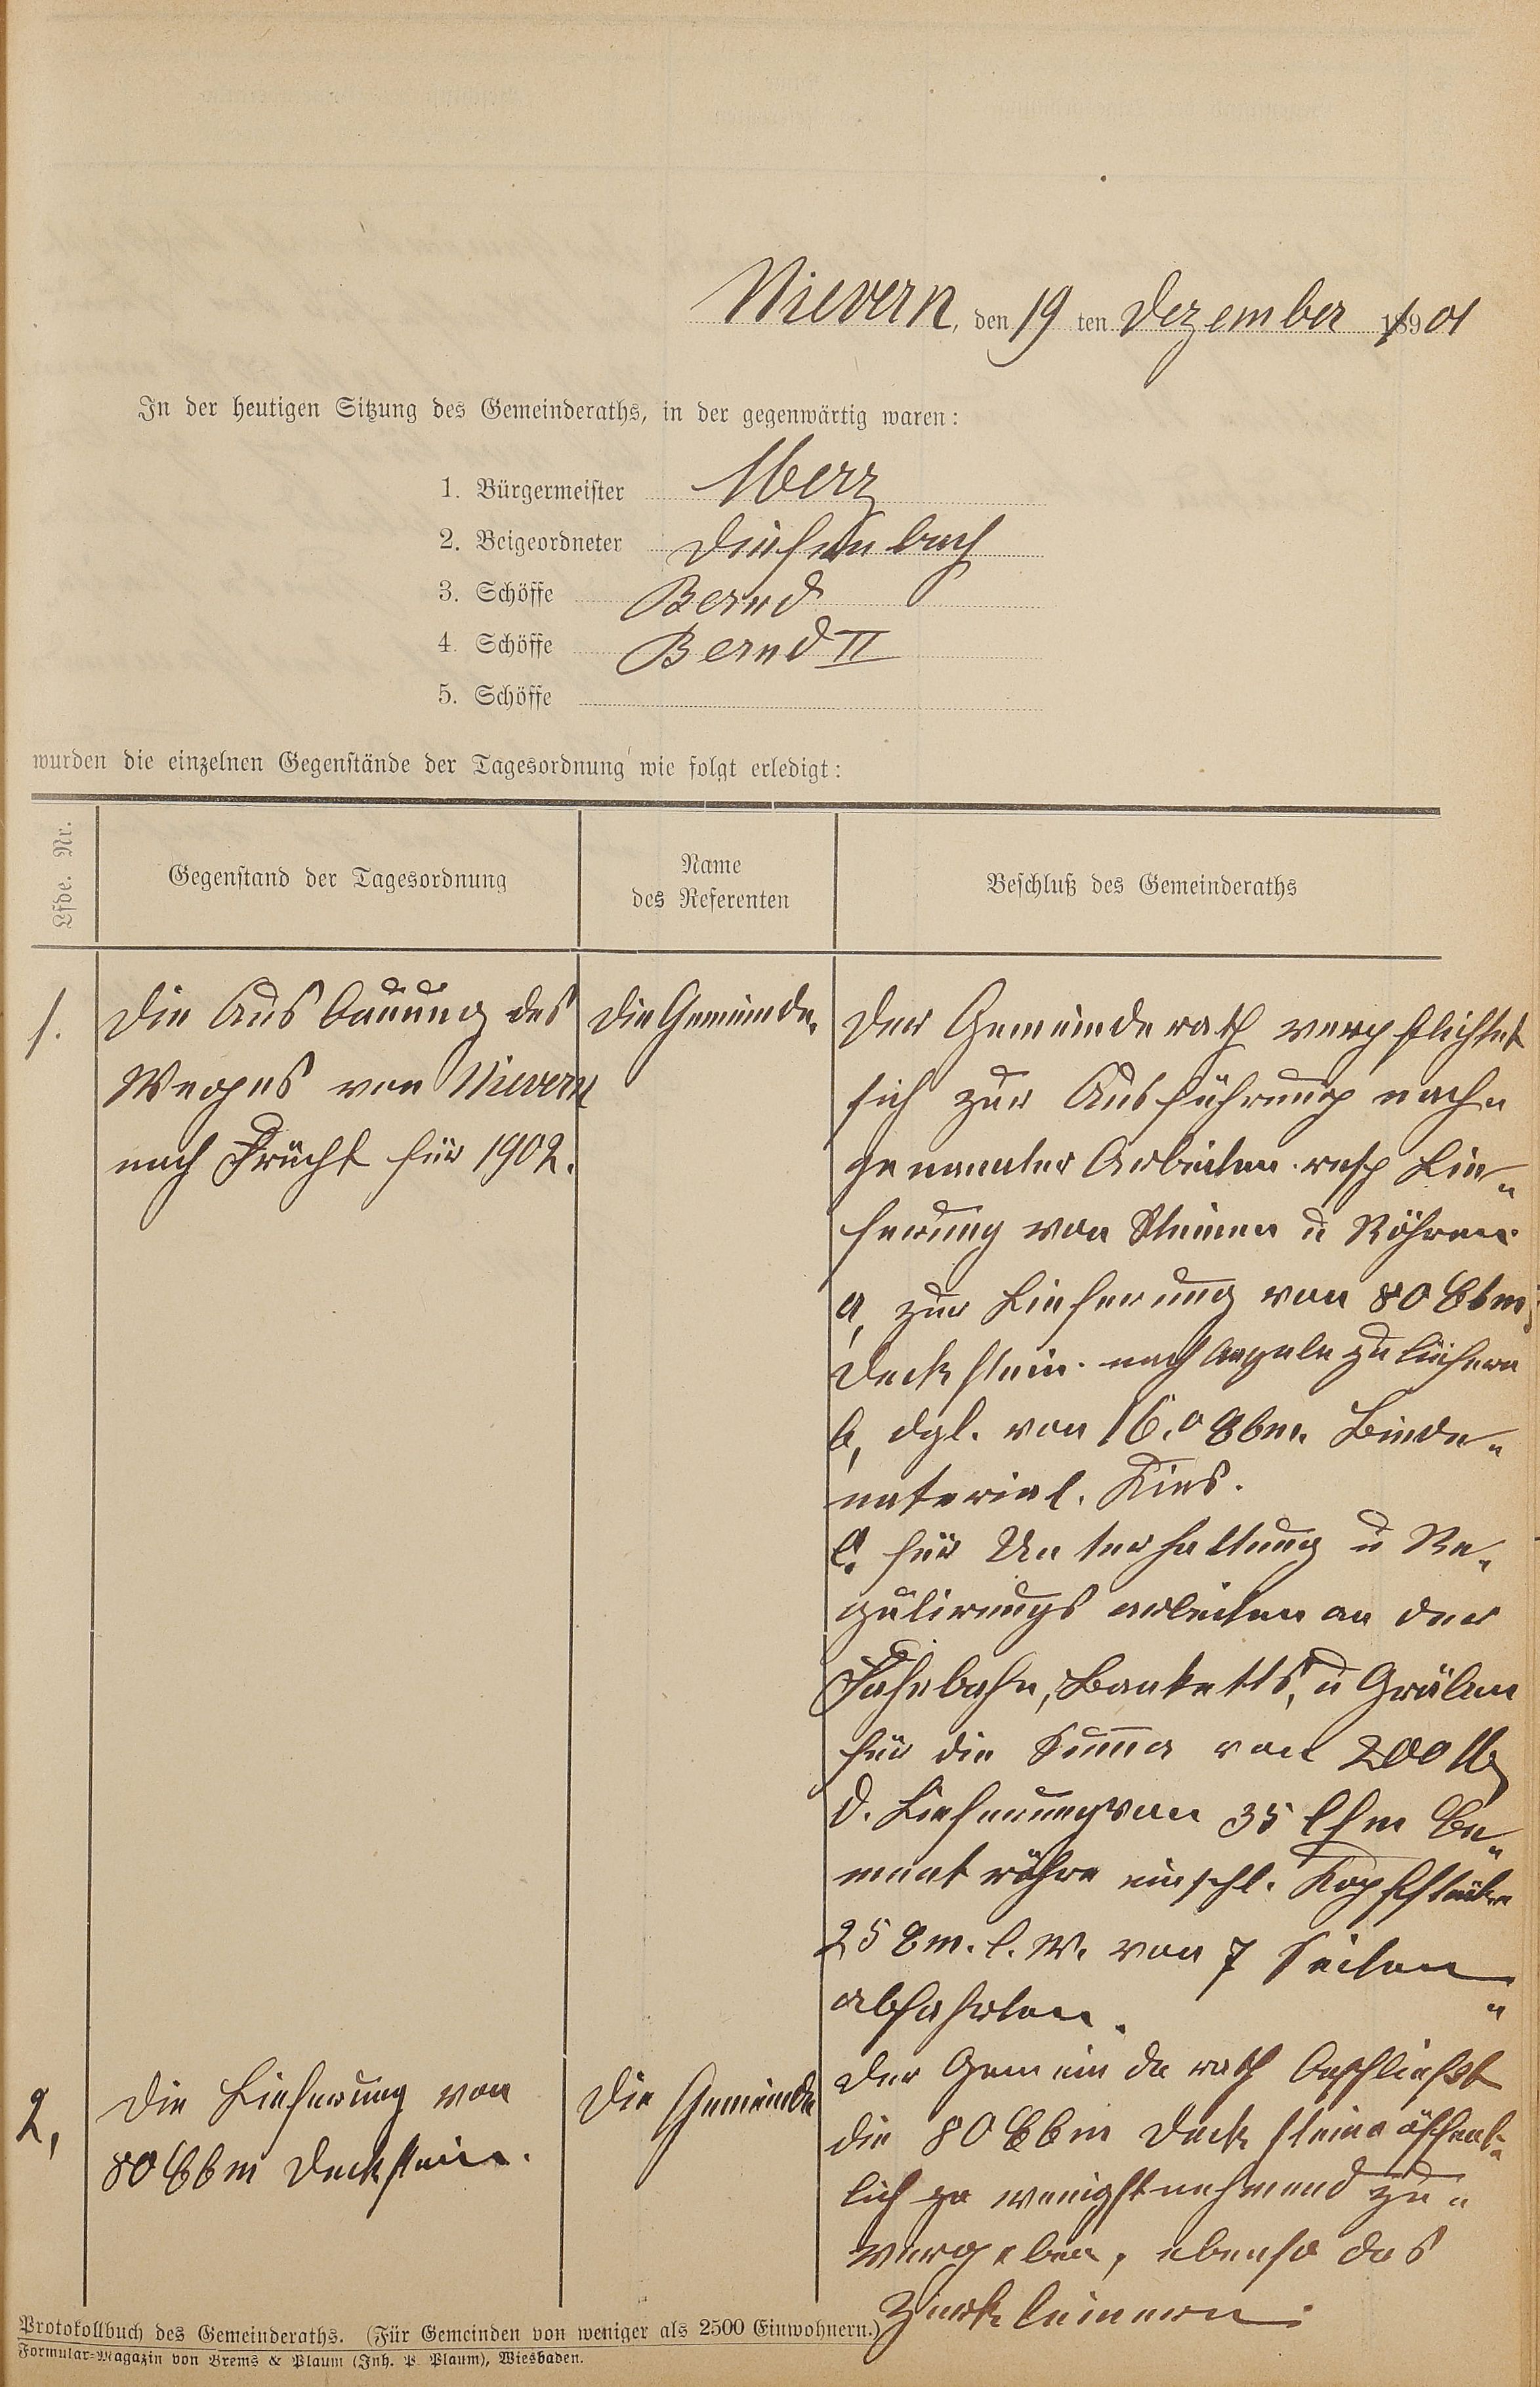 Nievern, den 19 ten Dezember 1901
In der heutigen Sitzung des Gemeinderaths, in der gegenwärtig waren:
1. Bürgermeister Merz
2. Beigeordneter Diefenbach
3. Schöffe Bernd
4. Schöffe Bernd II
5. Schöffe
wurden die einzelnen Gegenstände der Tagesordnung wie folgt erledigt:
Lfde. Nr.
Gegenstand der Tagesordnung
Name
des Referenten
Beschluß des Gemeinderaths
1.
Die Ausbauung des
Weges von Nievern
nach Frücht für 1902.
Die Gemeinde.
Der Gemeinderath verpflichtet
sich zur Ausführung nach„
genannter Arbeiten resp Lie„
ferung von Steinen u Röhren.
a, zur Lieferung von 80 Cbm
Deckstein. nach zu liefern
b, dgl. von 16,0 Cbm. Binde„
material. Kies.
c. für Unterhaltung u Re„
gulirungs arbeiten an der
Fahrbahn, Banketts, u Gräben
für die Summa von 200 M
d. Lieferung von 35 lfm Ce„
mentröhre einschl. Kopfstücke
25 Cm. l. W. von 7 Seiten„
abfahrten.
2,
Die Lieferung von
80 Cbm Deckstein.
Die Gemeinde
Der Gemeinderath beschließt
die 80 Cbm Decksteine öffent„
lich wenigstnehmend zu„
vergeben, ebenso das
Zerkleinern.
Protokollbuch des Gemeinderaths. (Für Gemeinden von weniger als 2500 Einwohnern.)
Formular-Magazin von Brems & Plaum (Inh. P. Plaum), Wiesbaden.